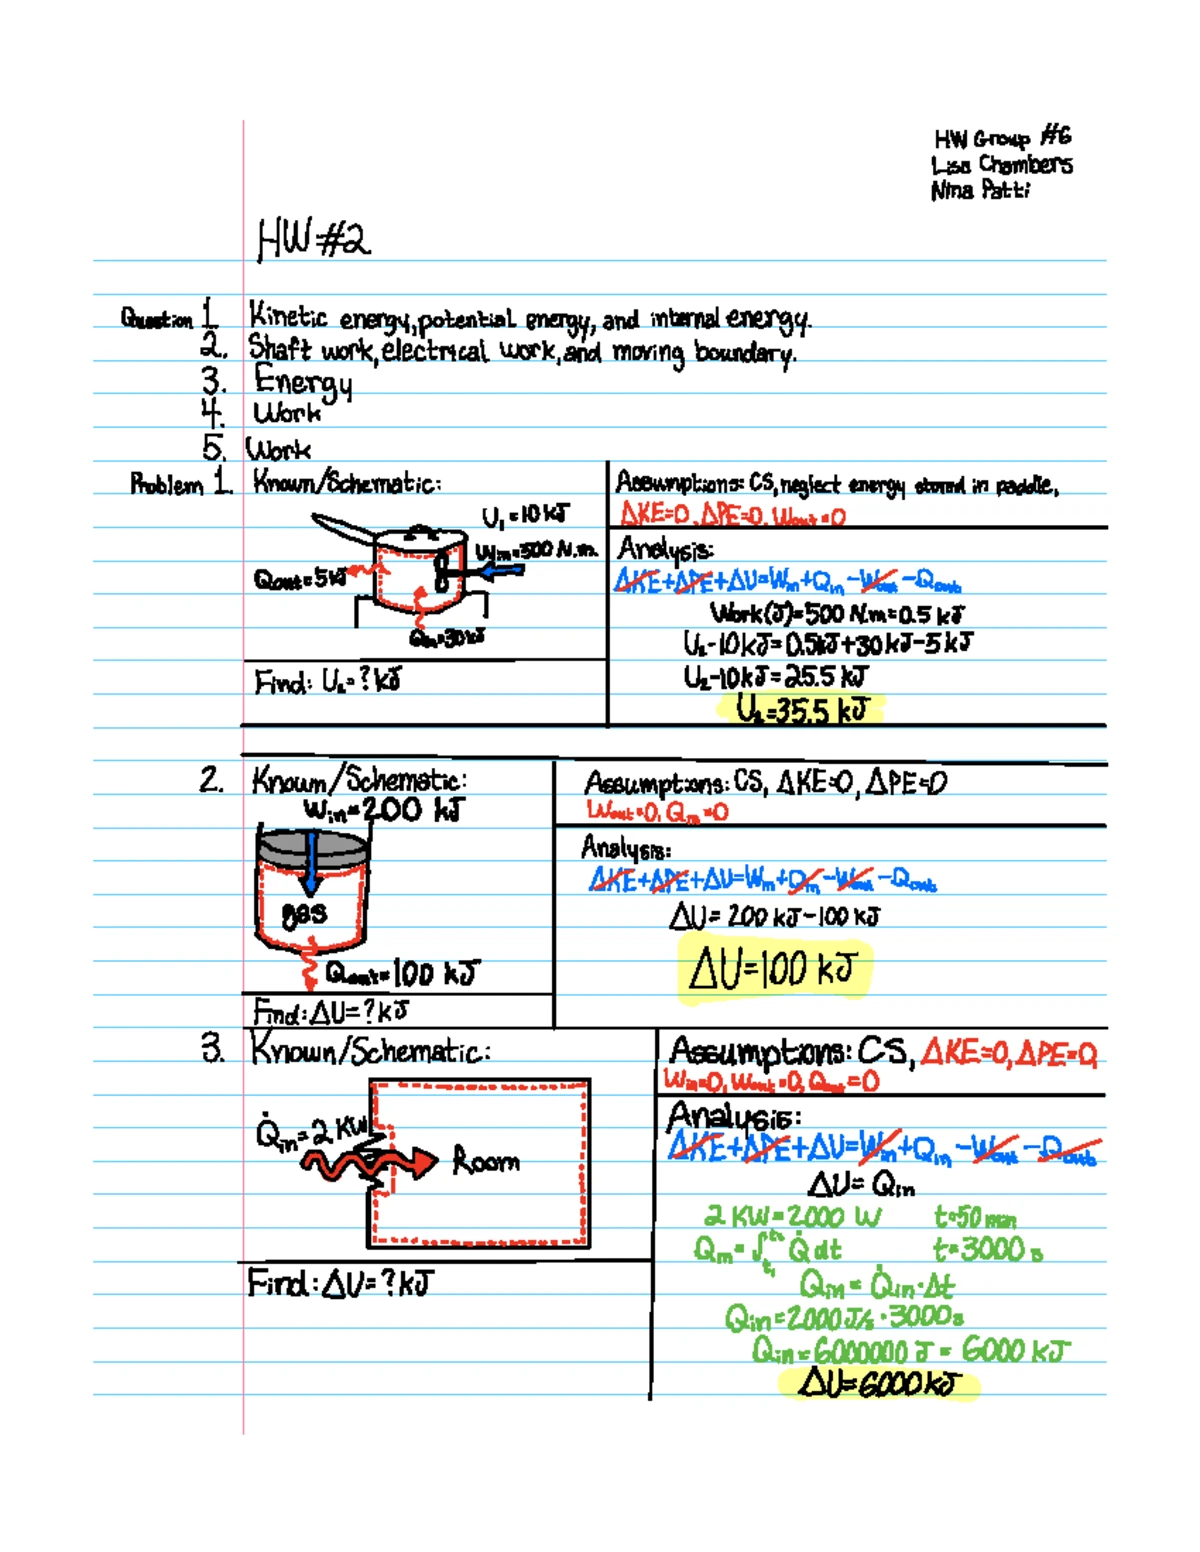 HW Group #6
Lisa Chambers
Nina Patti
HW #2
Question 1 Kinetic energy, potential energy, and internal energy.
2. Shaft work, electrical work, and moving boundary.
3. Energy
4. Work
5. Work
Problem 1. Known/Schematic:
U₁ = 10 kJ
Win=500 N.m.
Qout = 5 kJ
Qin=30 kJ
Find: U₂ = ? kJ
Assumptions: CS, neglect energy stored in paddle,
ΔKE=0, ΔPE=0, Wout=0
Analysis:
ΔKE+ΔPE+ΔU=Win+Qin-Wout-Qout
Work(J)=500 N.m=0.5 kJ
U₂-10kJ=0.5kJ+30kJ-5kJ
U₂-10kJ=25.5 kJ
U₂=35.5 kJ
2. Known/Schematic:
Win=200 kJ
gas
Qout=100 kJ
Find: ΔU=? kJ
Assumptions: CS, ΔKE=0, ΔPE=0
Wout=0, Qin=0
Analysis:
ΔKE+ΔPE+ΔU=Win+Qin-Wout-Qout
ΔU= 200 kJ-100 kJ
ΔU=100 kJ
3. Known/Schematic:
Q̇in=2 KW
Room
Find: ΔU=? kJ
Assumptions: CS, ΔKE=0, ΔPE=0,
Win=0, Wout=0, Qout=0
Analysis:
ΔKE+ΔPE+ΔU=Win+Qin-Wout-Qout
ΔU= Qin
2 KW=2000 W t=50 min
Qin=∫t₁t₂ Q̇ dt t=3000 s
Qin= Q̇in·Δt
Qin=2000 J/s·3000s
Qin=6000000 J = 6000 kJ
ΔU=6000kJ